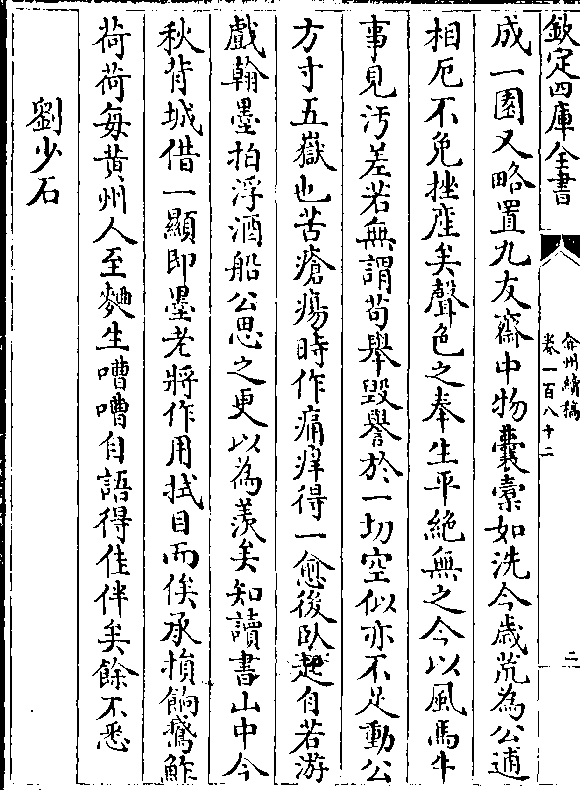 欽定四庫全書
弇州續稿
卷一百八十二
二
成一園又略置九友齋中物囊橐如洗今歲荒為公逋
相厄不免挫産矣聲色之奉生平絶無之今以風馬牛
事見汚差若無謂苟舉毁譽於一切空似亦不足動公
方寸五嶽也苦瘡瘍時作痛痒得一愈後卧起自若游
戲翰墨拍浮酒船公思之更以為羡矣知讀書山中今
秋背城借一顯即墨老將作用拭目而俟承損餉鵞鮓
荷荷每黄州人至麯生嘈嘈自語得佳伴矣餘不悉
劉少石